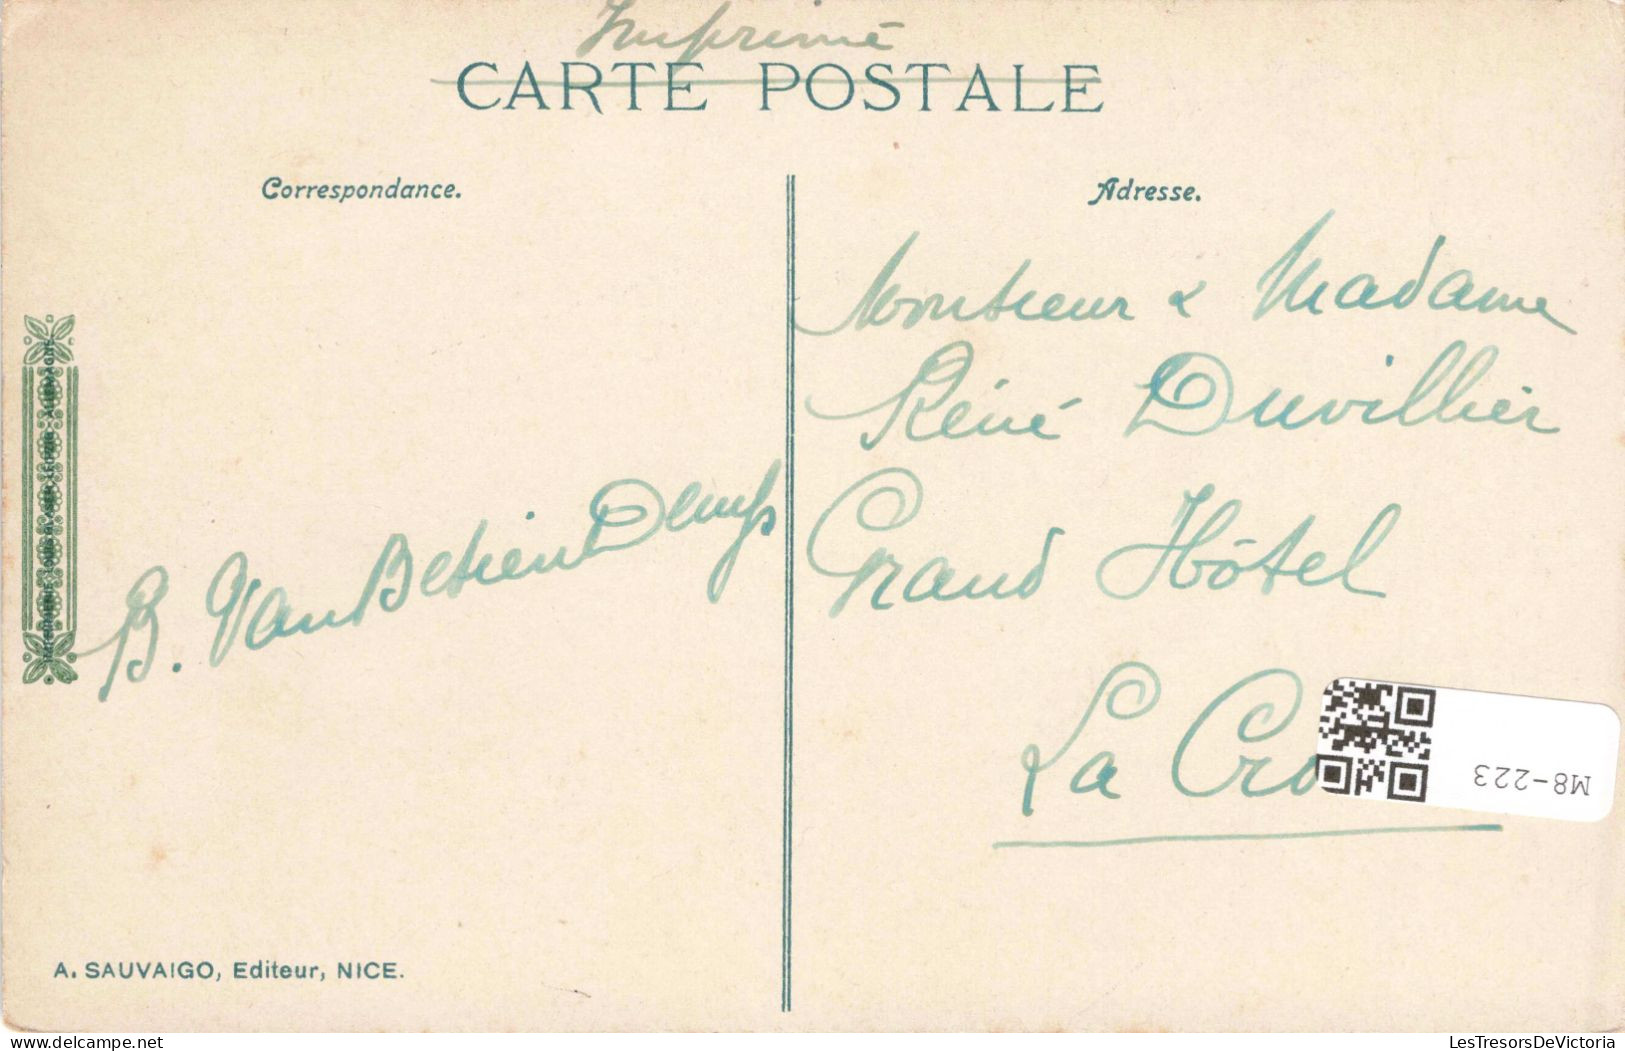 Imprimé
CARTE POSTALE
Correspondance.
Adresse.
Monsieur & Madame
Réné Duvillier
Grand Hôtel
La Cro
B. Van
A. SAUVAIGO, Editeur, NICE.
M8-223
www.LesTresorsDeVictoria